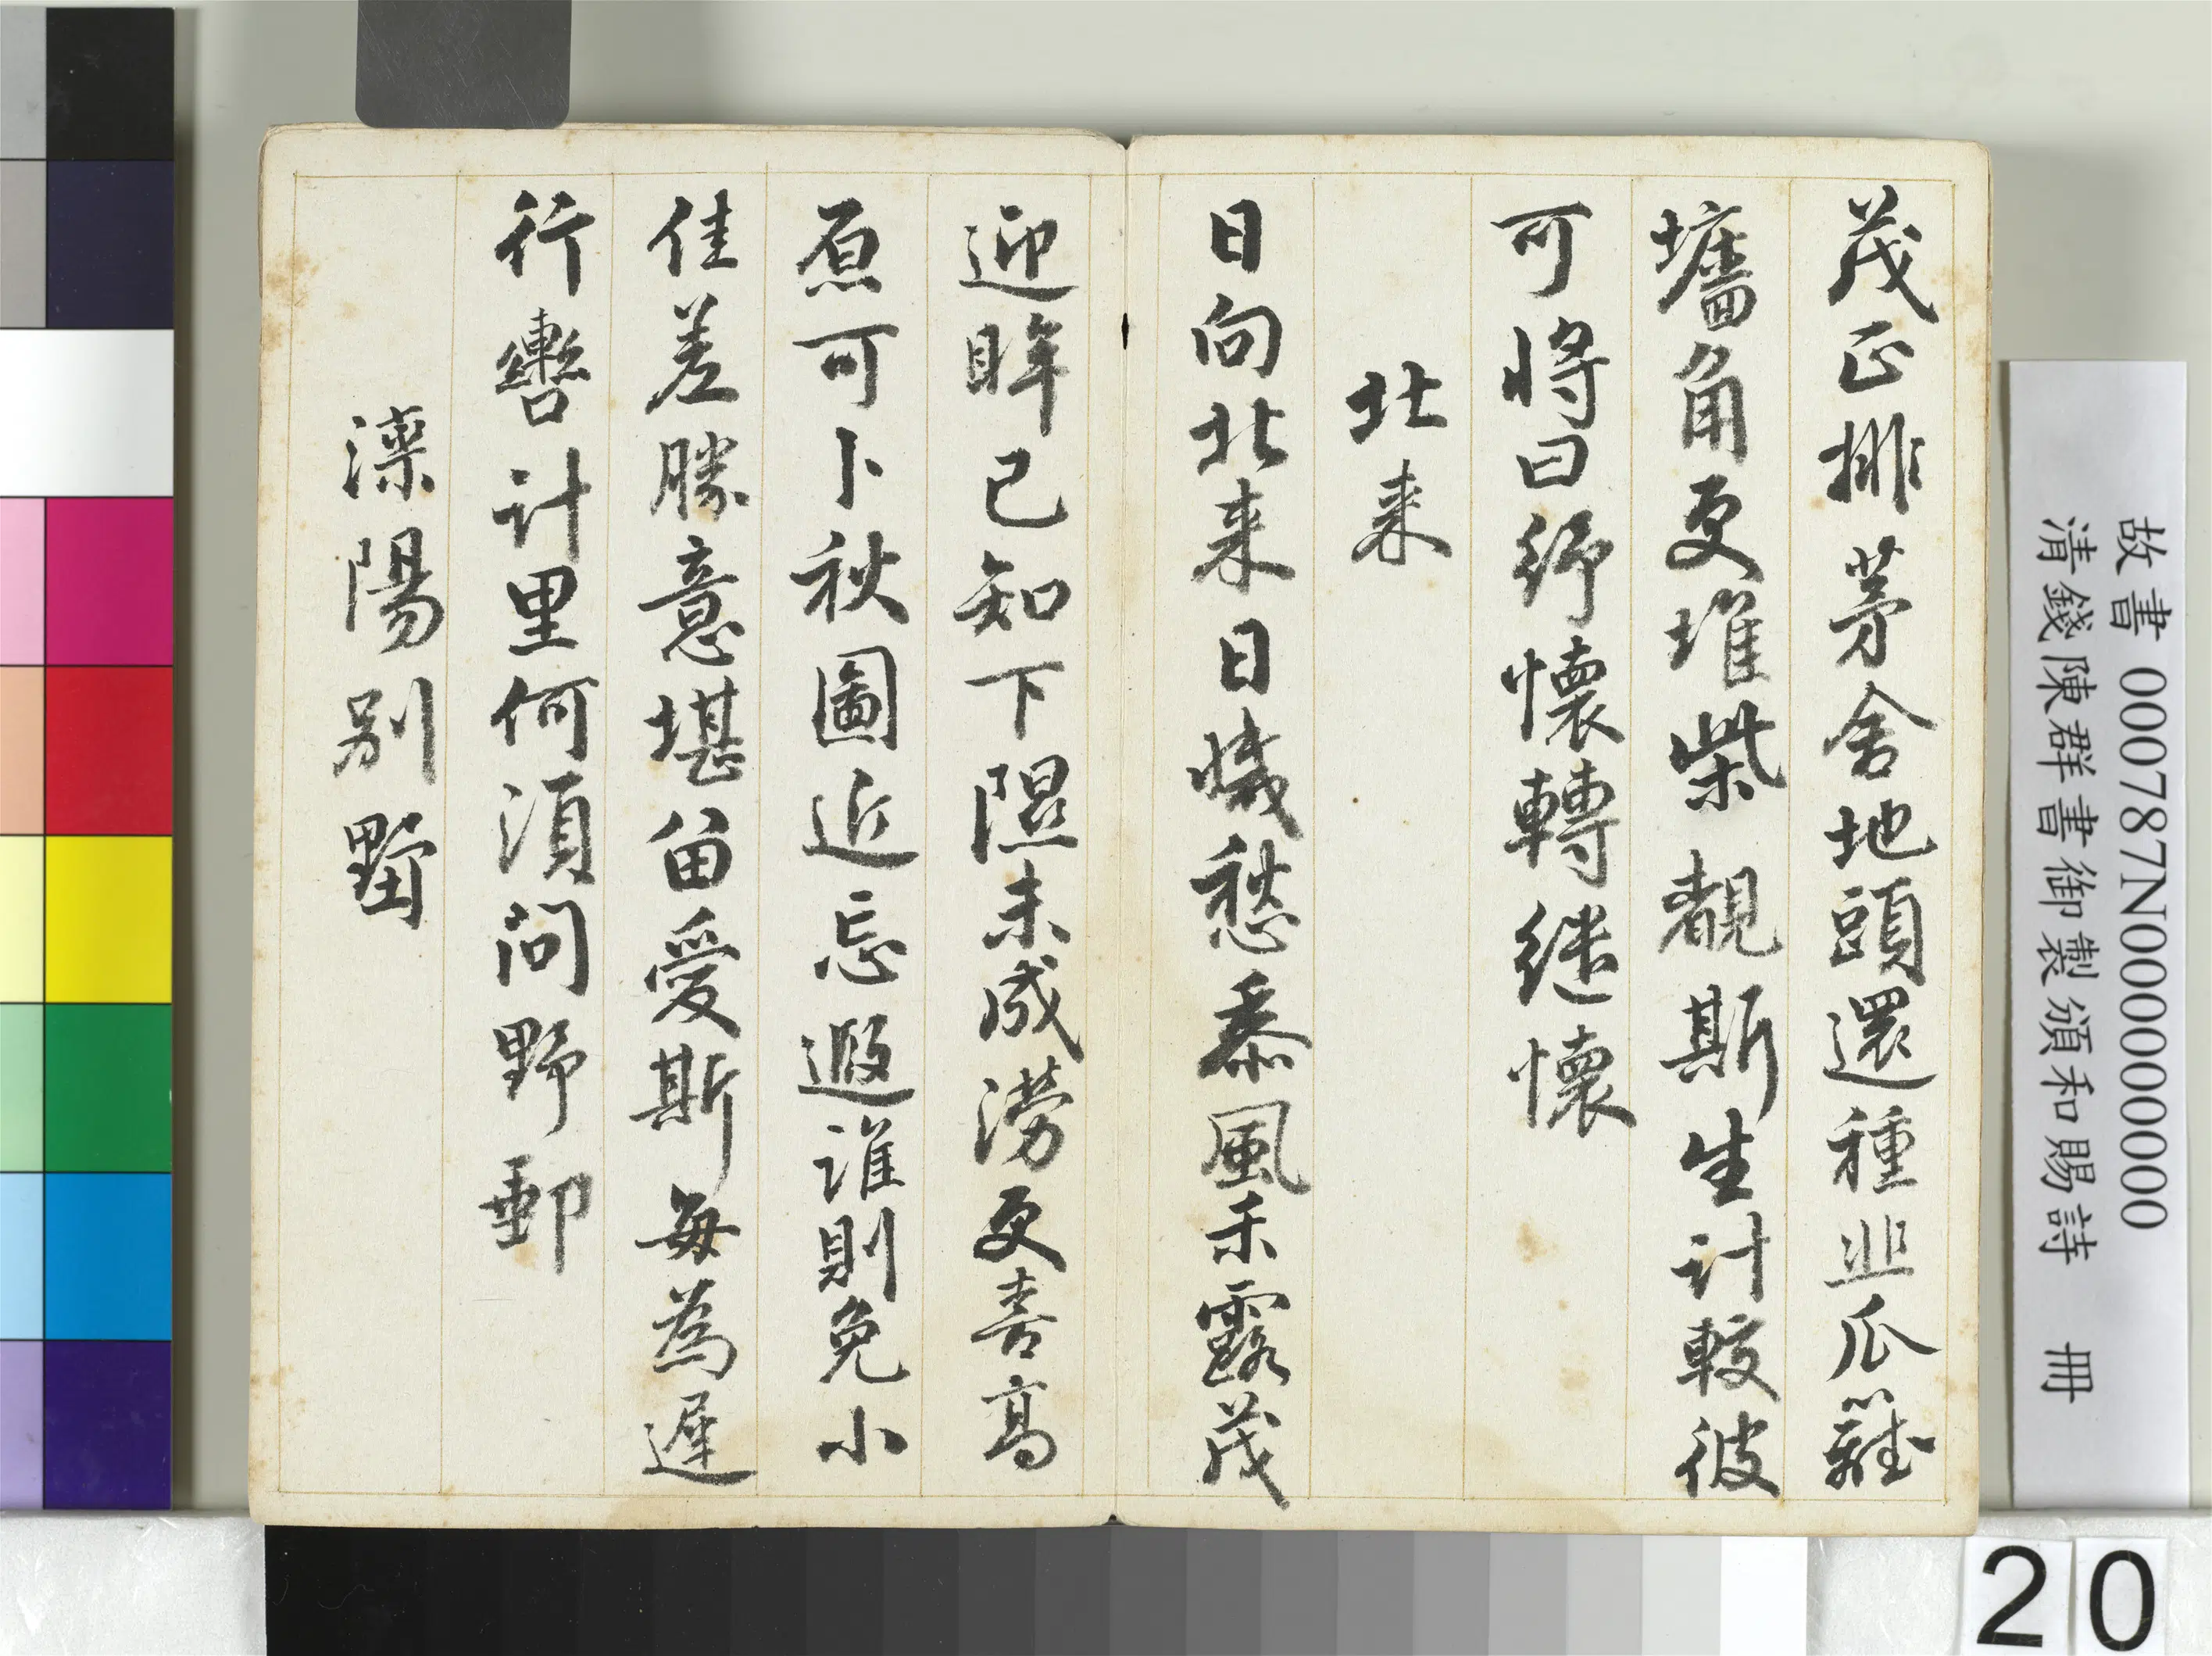 茂正排茅舍地頭還種韭瓜籬
墻角更堆柴覩斯生計較彼
可將曰紓懷轉繼懷
北来
日向北来日㡬愁黍風禾露茂
迎眸已知下隰未成澇更喜高
原可卜秋圖近忘遐誰則免小
佳差勝意堪留愛斯每為遲
行轡計里何須問野郵
灤陽別墅
故書 000787N000000000
清錢陳群書御製頒和賜詩 冊
20